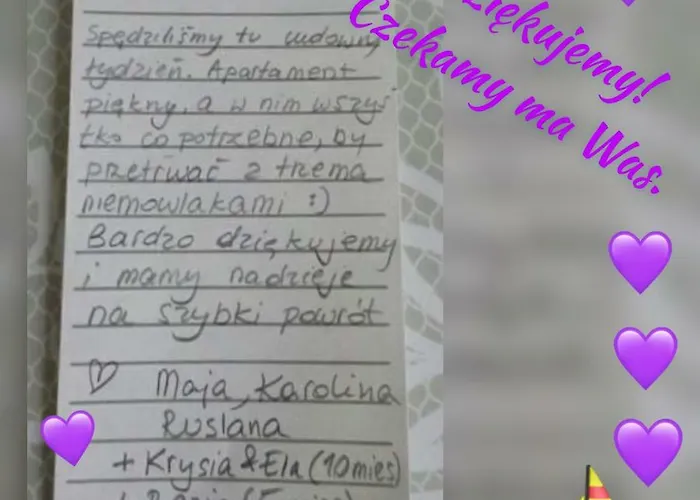 Spędziliśmy tu cudowny
tydzień. Apartament
piękny, a w nim wszys
tko co potrzebne, by
przetrwać z trzema
niemowlakami :)
Bardzo dziękujemy
i mamy nadzieje
na szybki powrót
♡ Maja, Karolina
Ruslana
+ Krysia & Ela (10 mies)
Dziękujemy!
Czekamy ma Was.